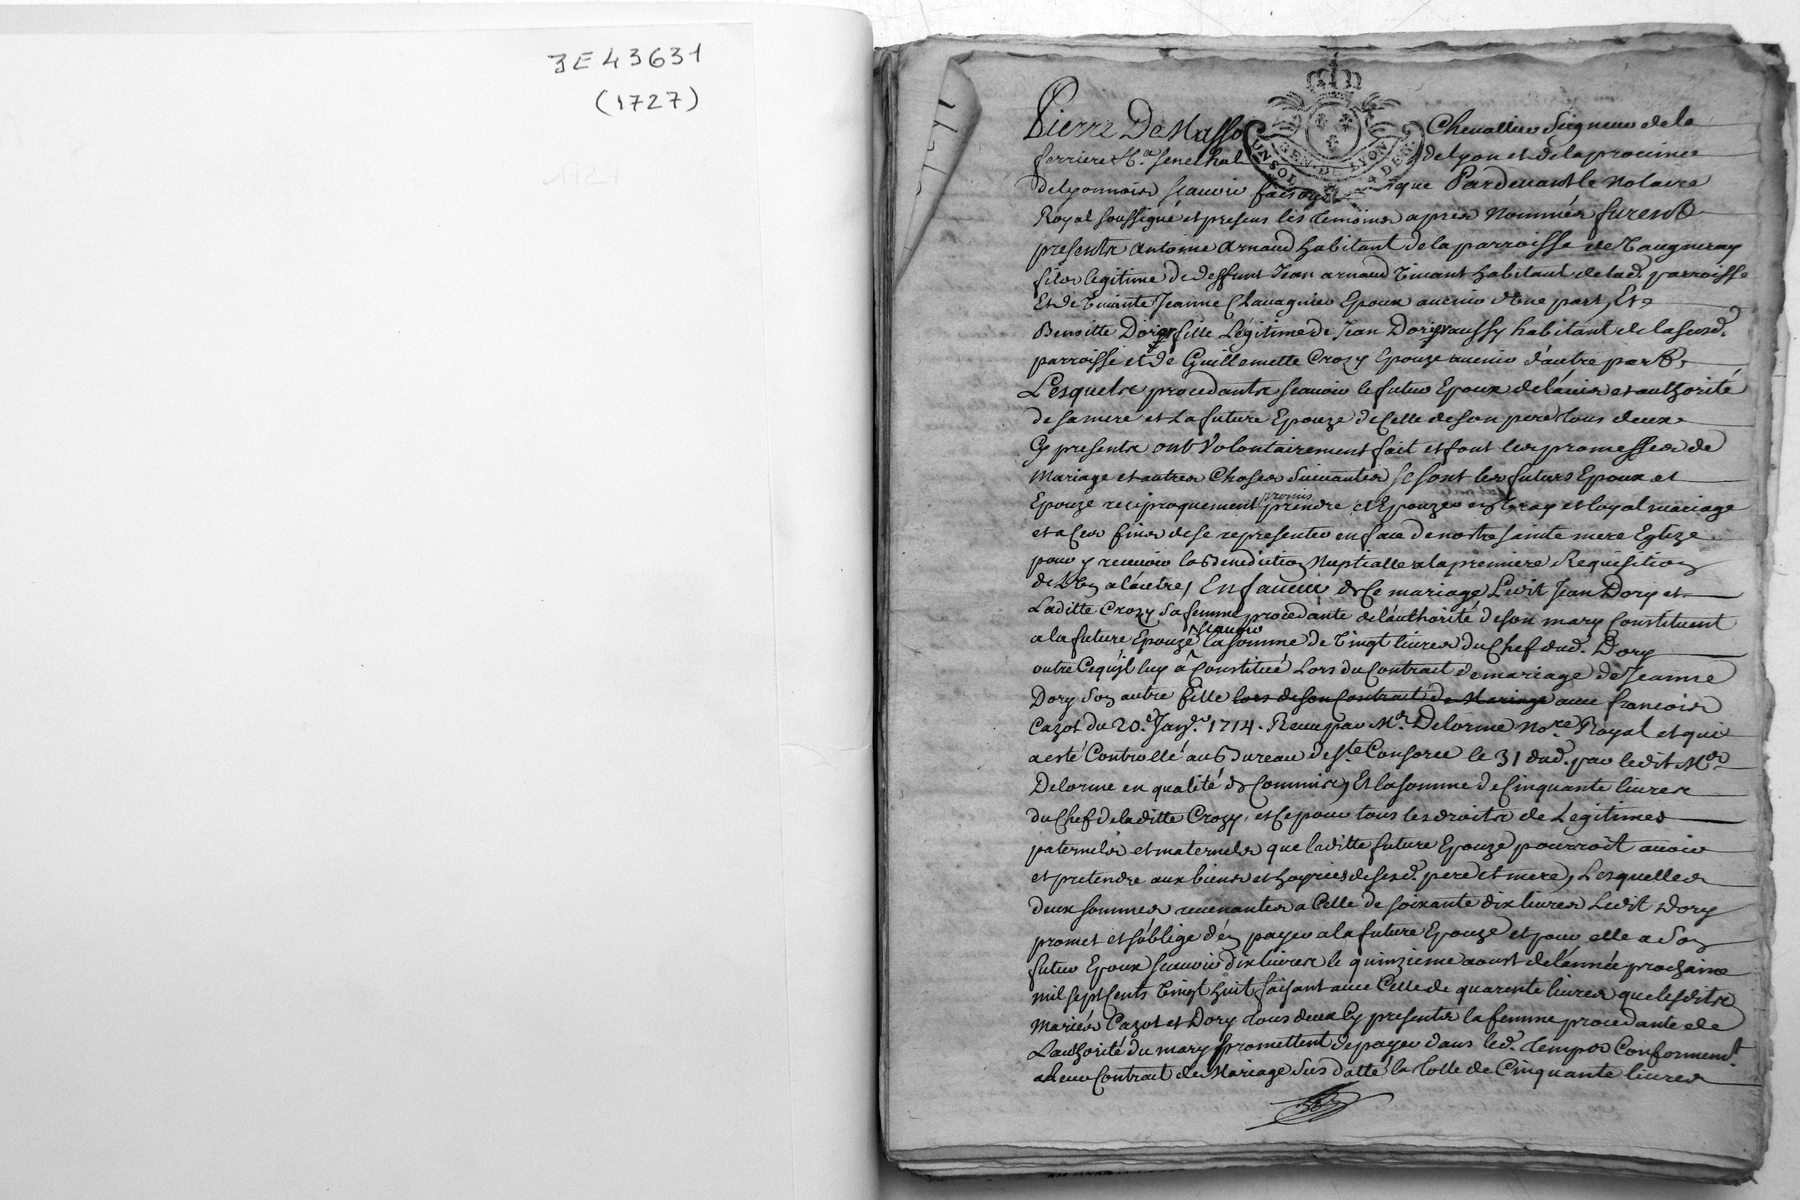 3E43631
(1727)
Pierre De Masso Chevallier Seigneur de la
ferriere &c.a senechal de Lyon et de la province
de lyonnois scavoir faisons que Pardevant le Notaire
Royal soussigné et presens les temoins apres Nommés furent
presents Antoine Arnaud habitant de la parroisse de Vaugneray
fils legitime de deffunt Jean arnaud vivant habitant de lad. parroisse
Et de vivante Jeanne Chavagnieu Epoux avenir d'Une part, Et
Benoitte Dory fille Légitime de Jean Dory aussy habitant de la susd.
parroisse et de Guillemette Crozy Epouze avenir d'autre part,
Lesquels procedants scavoir le futur Epoux de l'avis et authorité
de sa mere et La future Epouze de Celle de son pere tous deux
Cy presents ont Volontairement fait et font les promesses de
Mariage et autres Choses Suivantes se sont les futurs Epoux et
Epouze reciproquement promis prendre et Epouzer en vray et loyal mariage
et a Ces fins de se representer en face de nostre sainte mere Eglize
pour y recevoir la Benediction Nuptialle a la premiere Requisition
de L'Un a l'autre, En faveur de Ce mariage Ledit Jean Dory et
Laditte Crozy Sa femme procedante de l'authorité de son mary Constituent
a la future Epouze scavoir la somme de Vingt livres du Chef dud. Dory
outre Cequ'jl luy a Constitué Lors du Contrait de mariage de Jeanne
Dory Son autre fille lors de son Contrait de Mariage avec francois
Cazot du 20.e Janv.r 1714. Receu par M.e Delorme No.re Royal et qui
a esté Controllé au Bureau de S.te Consorce le 31 dud. par ledit M.e
Delorme en qualité de Commis, Et la somme de Cinquante livres
du Chef de laditte Crozy, et Ce pour tous les droits de Légitimes
paternels et maternels que laditte future Epouze pourroit avoir
et pretendre aux biens et hoyries de sesd. pere et mere, Lesquelles
deux sommes revenantes a Celle de soixante dix livres Ledit Dory
promet et s'oblige d'en payer a la future Epouze et pour elle a Son
futur Epoux scavoir dix livres le quinzieme aoust de l'année prochaine
mil sept Cents Vingt huit faisant avec Celle de quarente livres que lesdits
Mariés Cazot et Dory tous deux Cy presents la femme procedante de
L'authorité du mary promettent de payer dans led. temps Conformem.t
a leur Contrait de Mariage Sus datté la Totte de Cinquante livres